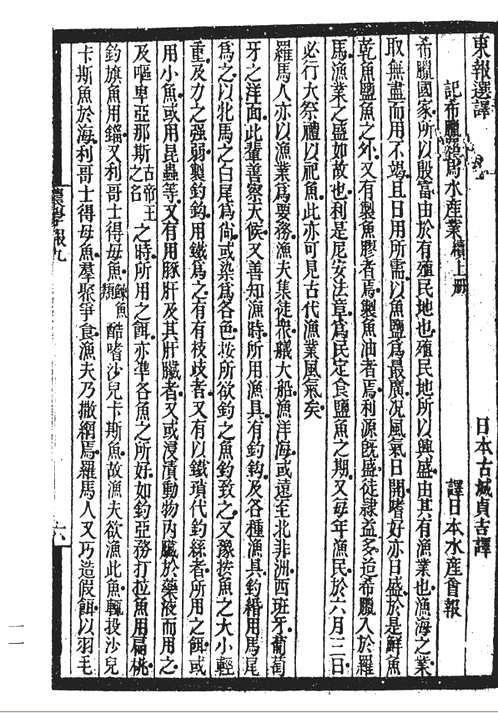 東報選譯
日本古城貞吉譯
記希臘羅馬水產業續上册
譯日本水產會報
希臘國家所以殷富由於有殖民地也殖民地所以興盛由其有漁業也漁海之業
取無盡而用不竭且日用所需以魚鹽爲最廣况風氣日開嗜好亦日盛於是鮮魚
乾魚鹽魚之外又有製魚膠者焉製魚油者焉利源旣盛徒隸益多迨希臘入於羅
馬漁業之盛如故也利是尼安法章爲民定食鹽魚之期又每年漁民於六月三日
必行大祭禮以祀魚此亦可見古代漁業風氣矣
羅馬人亦以漁業爲要務漁夫集徒衆艤大船漁洋海或遠至北非洲西班牙葡萄
牙之洋面此輩善察天候又善知漁時所用漁具有釣鈎及各種漁具釣緡用馬尾
爲之以牝馬之白尾爲尙或染爲各色按所欲釣之魚釣致之又豫按魚之大小輕
重及力之强弱製釣鈎用鐵爲之有有枝歧者又有以鐵瑣代釣絲者所用之餌或
用小魚或用昆蟲等又有用豚肝及其肝臟者又或浸漬動物內臟於藥液而用之
及嘔卑亞那斯古帝王之名之時所用之餌亦準各魚之所好如釣亞務打拉魚用扁桃
釣旗魚用鯔又利哥士得母魚鰊魚類酷嗜沙兒卡斯魚故漁夫欲漁此魚輒投沙兒
卡斯魚於海利哥士得母魚羣聚爭食漁夫乃撒網焉羅馬人又巧造假餌以羽毛
農學報九
六
一一